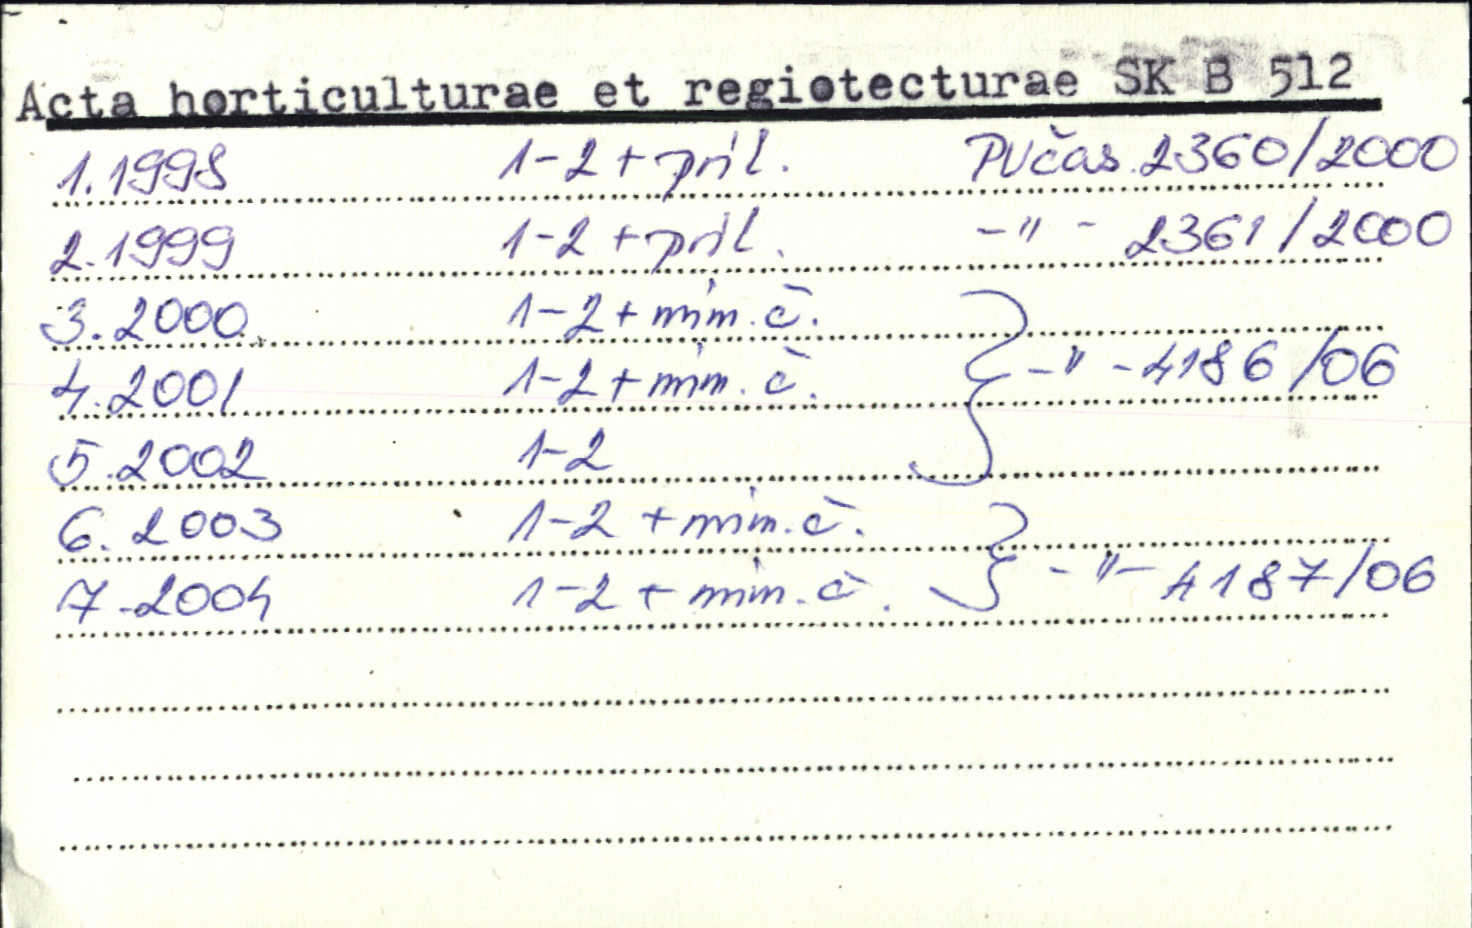 Acta horticulturae et regiotecturae SK B 512
1.1998 1-2 + príl. PVčas. 2360/2000
2.1999 1-2 + príl. -"- 2361/2000
3.2000 1-2 + mim. č.
4.2001 1-2 + mim. č. } -"- 4186/06
5.2002 1-2
6.2003 1-2 + mim. č.
7.2004 1-2 + mim. č. } -"- 4187/06